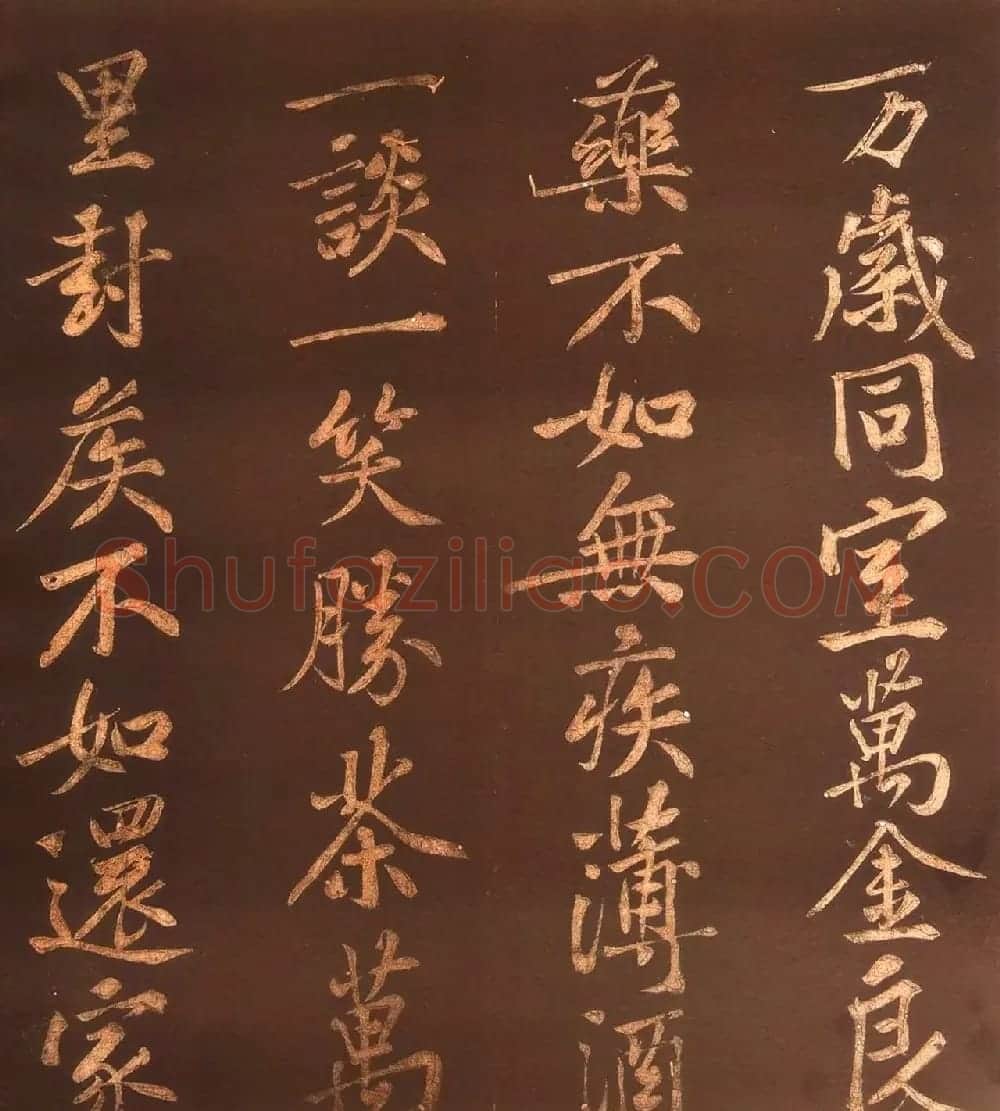 万歲同室萬金良
藥不如無疾薄酒
一談一笑勝茶萬
里封侯不如還家
Shufaziliao.COM